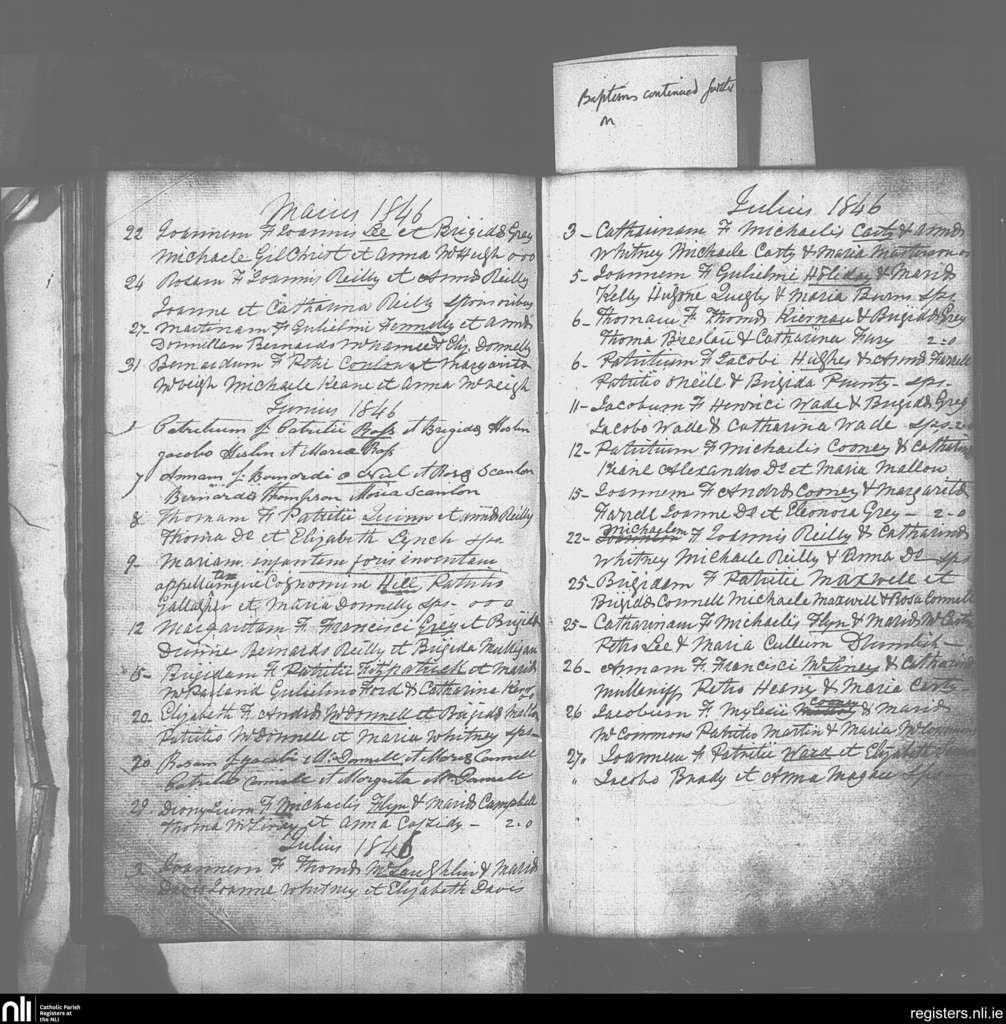 Baptisms continued further
on
Maius 1846
22 Joannem F Joannis Lee et Brigidæ Grey
Michaele GilChrist et Anna McHugh 0=0
24 Rosam F Joannis Reilly et Annæ Reilly
Joanne et Catharina Reily sponsoribus
27- F Gulielmi Donnelly et Annæ
Donnellan Bernardo et Eliz. Donnelly
31 Bernardum F Petri Conlon et Margarita
McVeigh Michaele Keane et Anna McVeigh
Junius 1846
Patritium f. Patritii Ross et Brigidæ Heslin
Jacobo Heslin et Maria Ross
7 Annam f. Bernardi o Neil et Rosæ Scanlon
Bernardo Thompson Maria Scanlon
8 Thomam F Patritii Quinn et Annæ Reilly
Thoma Do et Elizabeth Lynch sps
9- Mariam infantem foris inventam
appellatamque Cognomine Hill Patritio
Gallagher et Maria Donnelly sps- 0=0
12 Margaritam F. Francisci Grey et Brigidæ
Dunne Bernardo Reilly et Brigida Mulligan
15- Brigidam F. Patritii Fitzpatrick et Mariæ
McParland Gulielmo Ford & Catharina
20 Elizabeth F. Andræ McDonnell et Brigidæ Mallon
Patritio McDonnell et Maria Whitney sps-
20 Rosam f. Jacobi Mc Donnell et Mariæ Connell
Patritio Connell et Margrita Mc Connell
28 Dionysium F Michaelis Flyn & Mariæ Campbell
Thoma et Anna Cassidy - 2=0
Julius 1846
2 Joannem F Thomæ McLaughlin & Mariæ
Davis Joanne Whitney et Elizabeth Davis
Julius 1846
3- Catharinam F Michaelis Carty & Annæ
Whitney Michaele Carty & Maria
5- Joannem F Gulielmi Holiday & Mariæ
Kelly Hugone Quigly & Maria Burns sps
6- Thomam F. Thomæ Kiernan & Brigidæ Grey
Thoma Breslan & Catharina Fury 2=0
6- Patritium F Jacobi Hughes & Annæ Farrell
Patritio oNeile & Brigida Prunty- sps-
11- Jacobum F Henrici Wade & Brigidæ Grey
Jacobo Wade & Catharina Wade sps 2=0
12- Patritium F Michaelis Cooney & Catharinæ
Keane Alexandro Do et Maria Mallon
15- Joannem F Andræ Cooney & Margaritæ
Farrell Joanne Do et Eleonora Grey- 2=0
22- Michaelem F Joannis Reilly & Catharinæ
Whitney Michaele Reilly & Anna Do sps
25- Brigidam F Patritii Maxwell et
Brigidæ Connell Michaele Maxwell & Rosa Connell
25- Catharinam F. Michaelis Flyn & Mariæ
Petro Lee & Maria Cullum Drumlish-
26- Annam F. Francisci McEney & Catharinæ
Petro Heany & Maria Carty-
26 Jacobum F Cooney & Mariæ
McCommon Patritio Martin & Maria
27. Joannem F Patritii Ward et Elizabeth
" Jacobo Brady et Anna Magher sps-
nli Catholic Parish
Registers at
the NLI
registers.nli.ie